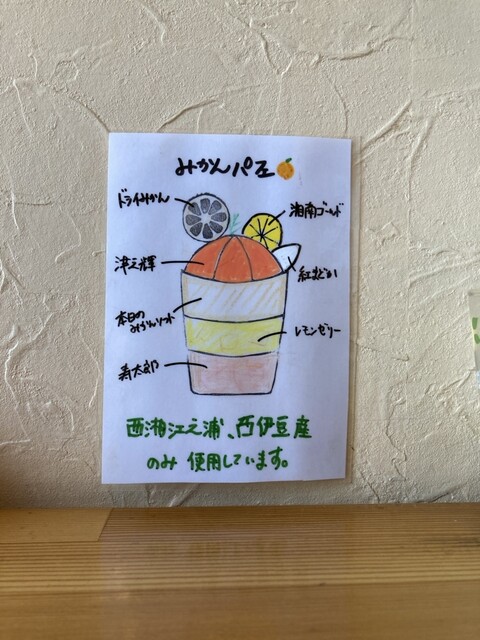 みかんパフェ
ドライみかん
湘南ゴールド
津之輝
紅まどか
本日の
みかんソフト
レモンゼリー
寿太郎
西湘江之浦、西伊豆産
のみ 使用しています。